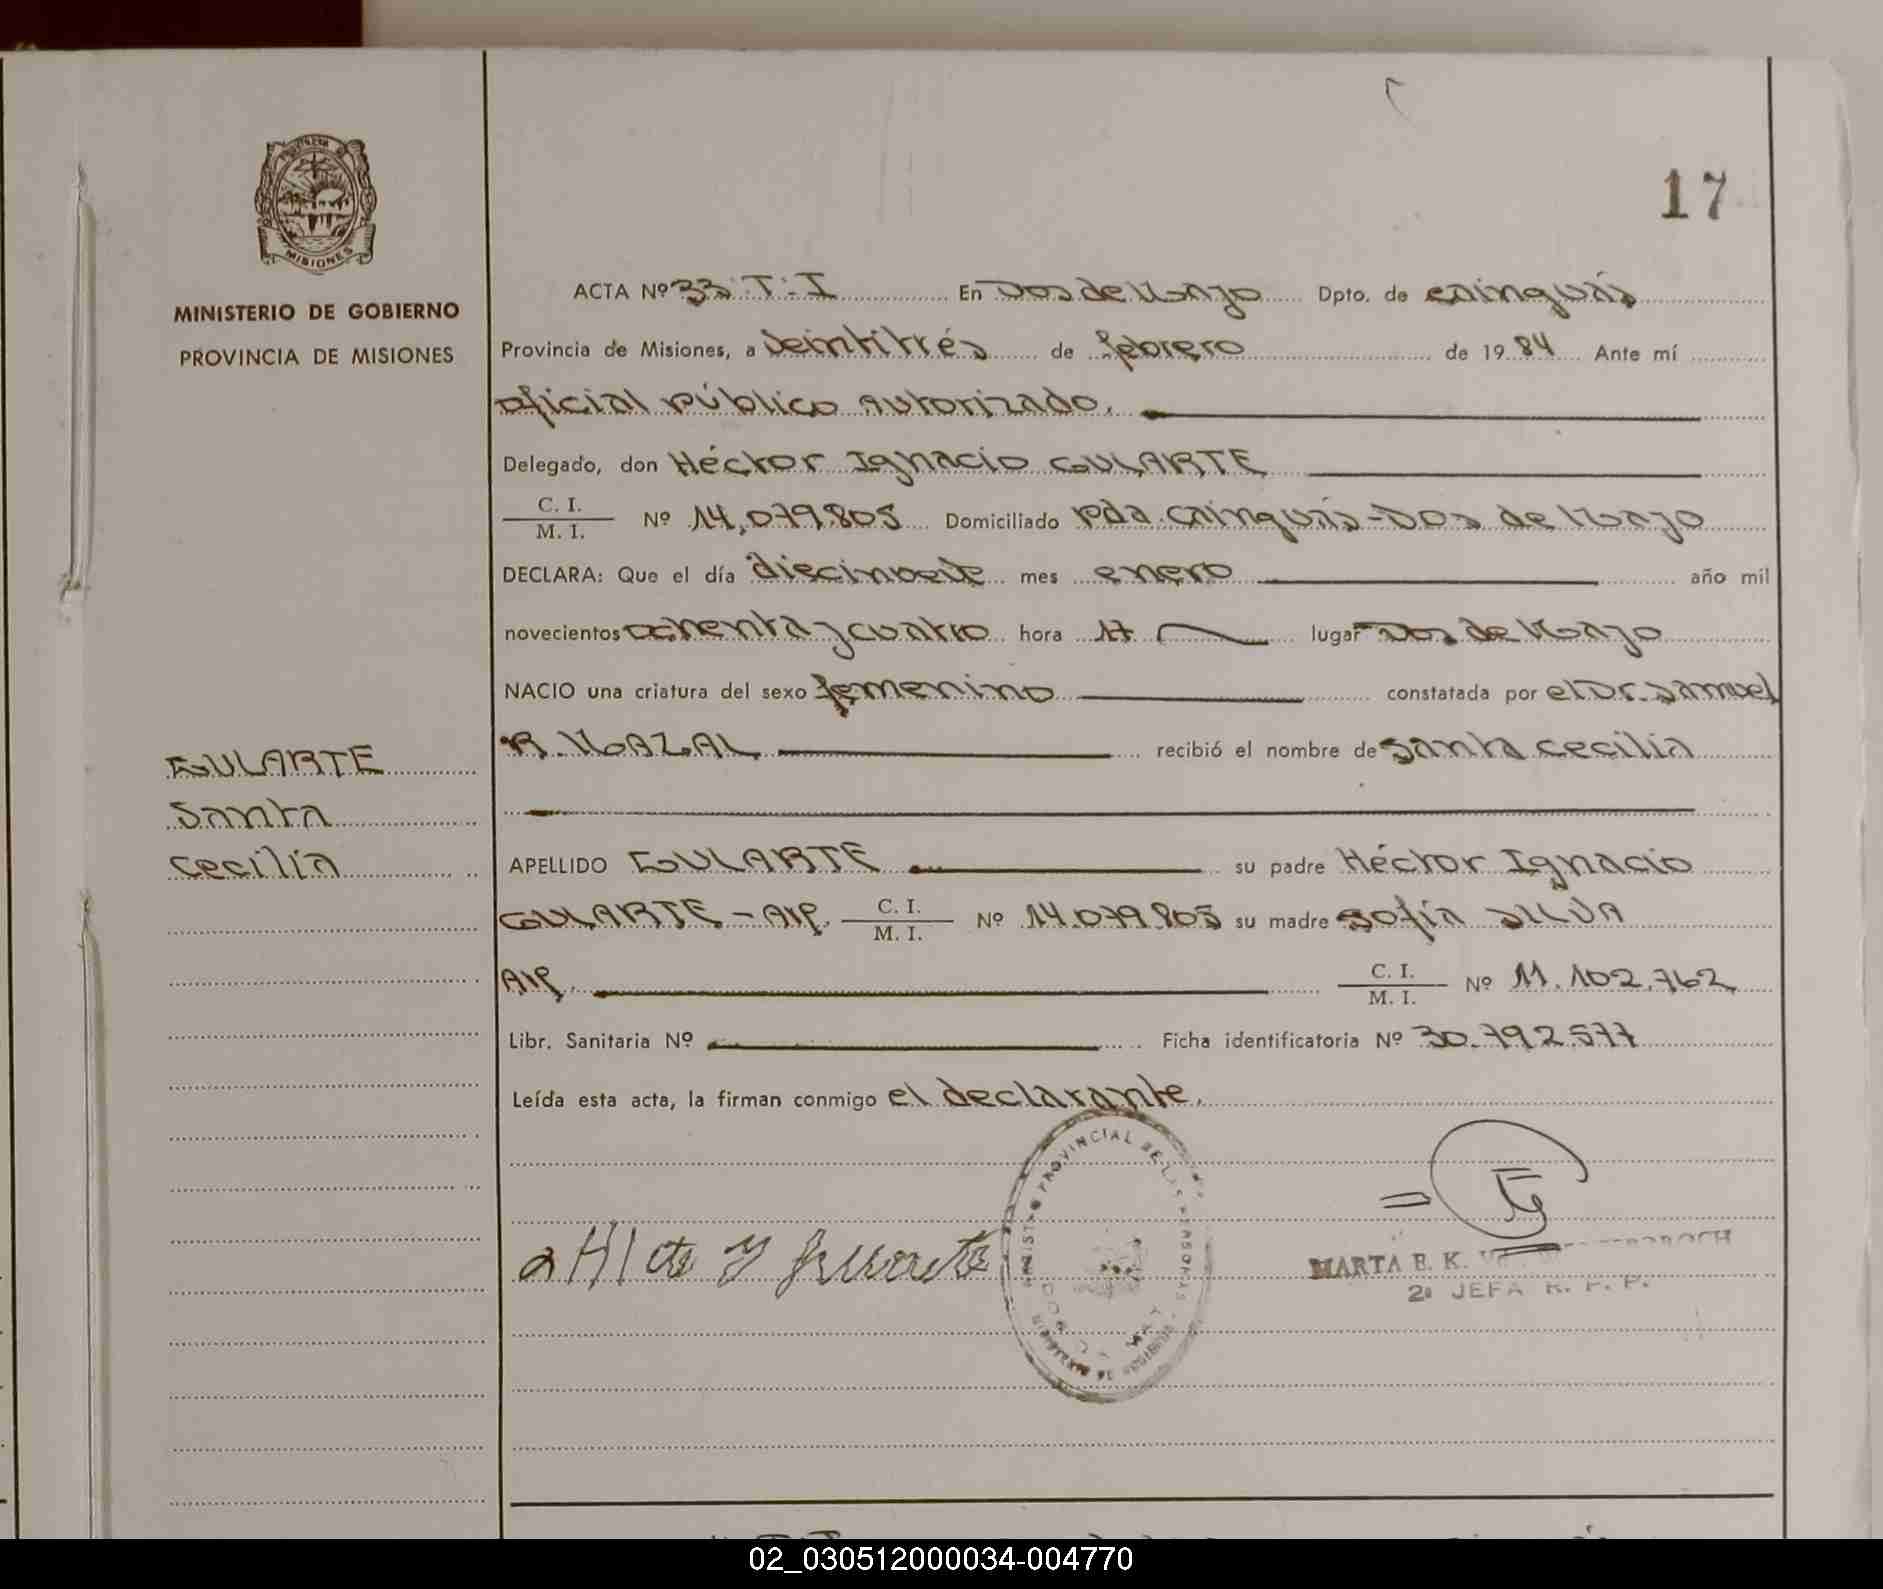 17
MINISTERIO DE GOBIERNO
PROVINCIA DE MISIONES
MISIONES
ACTA Nº 33 T-I En Dos de Mayo Dpto. de Cainguás
Provincia de Misiones, a Veintitrés de febrero de 1984 Ante mí
oficial público autorizado.
Delegado, don Héctor Ignacio GULARTE
C. I.
M. I. Nº 14,079.805 Domiciliado Pda. Cainguás-Dos de Mayo
DECLARA: Que el día diecinueve mes enero año mil
novecientos ochenta y cuatro hora 17 lugar Dos de Mayo
NACIO una criatura del sexo femenino constatada por el Dr. Samuel
R. MAZAL recibió el nombre de Santa Cecilia
GULARTE
Santa
Cecilia
APELLIDO GULARTE su padre Héctor Ignacio
GULARTE - C. I.
M. I. Nº 14.079.805 su madre Sofía SILVA
C. I.
M. I. Nº 11.102.762
Libr. Sanitaria Nº Ficha identificatoria Nº 30.792.577
Leída esta acta, la firman conmigo el declarante.
PROVINCIAL DE LAS PERSONAS
MARTA E. K.
2ª JEFA R. P. P.
02_030512000034-004770